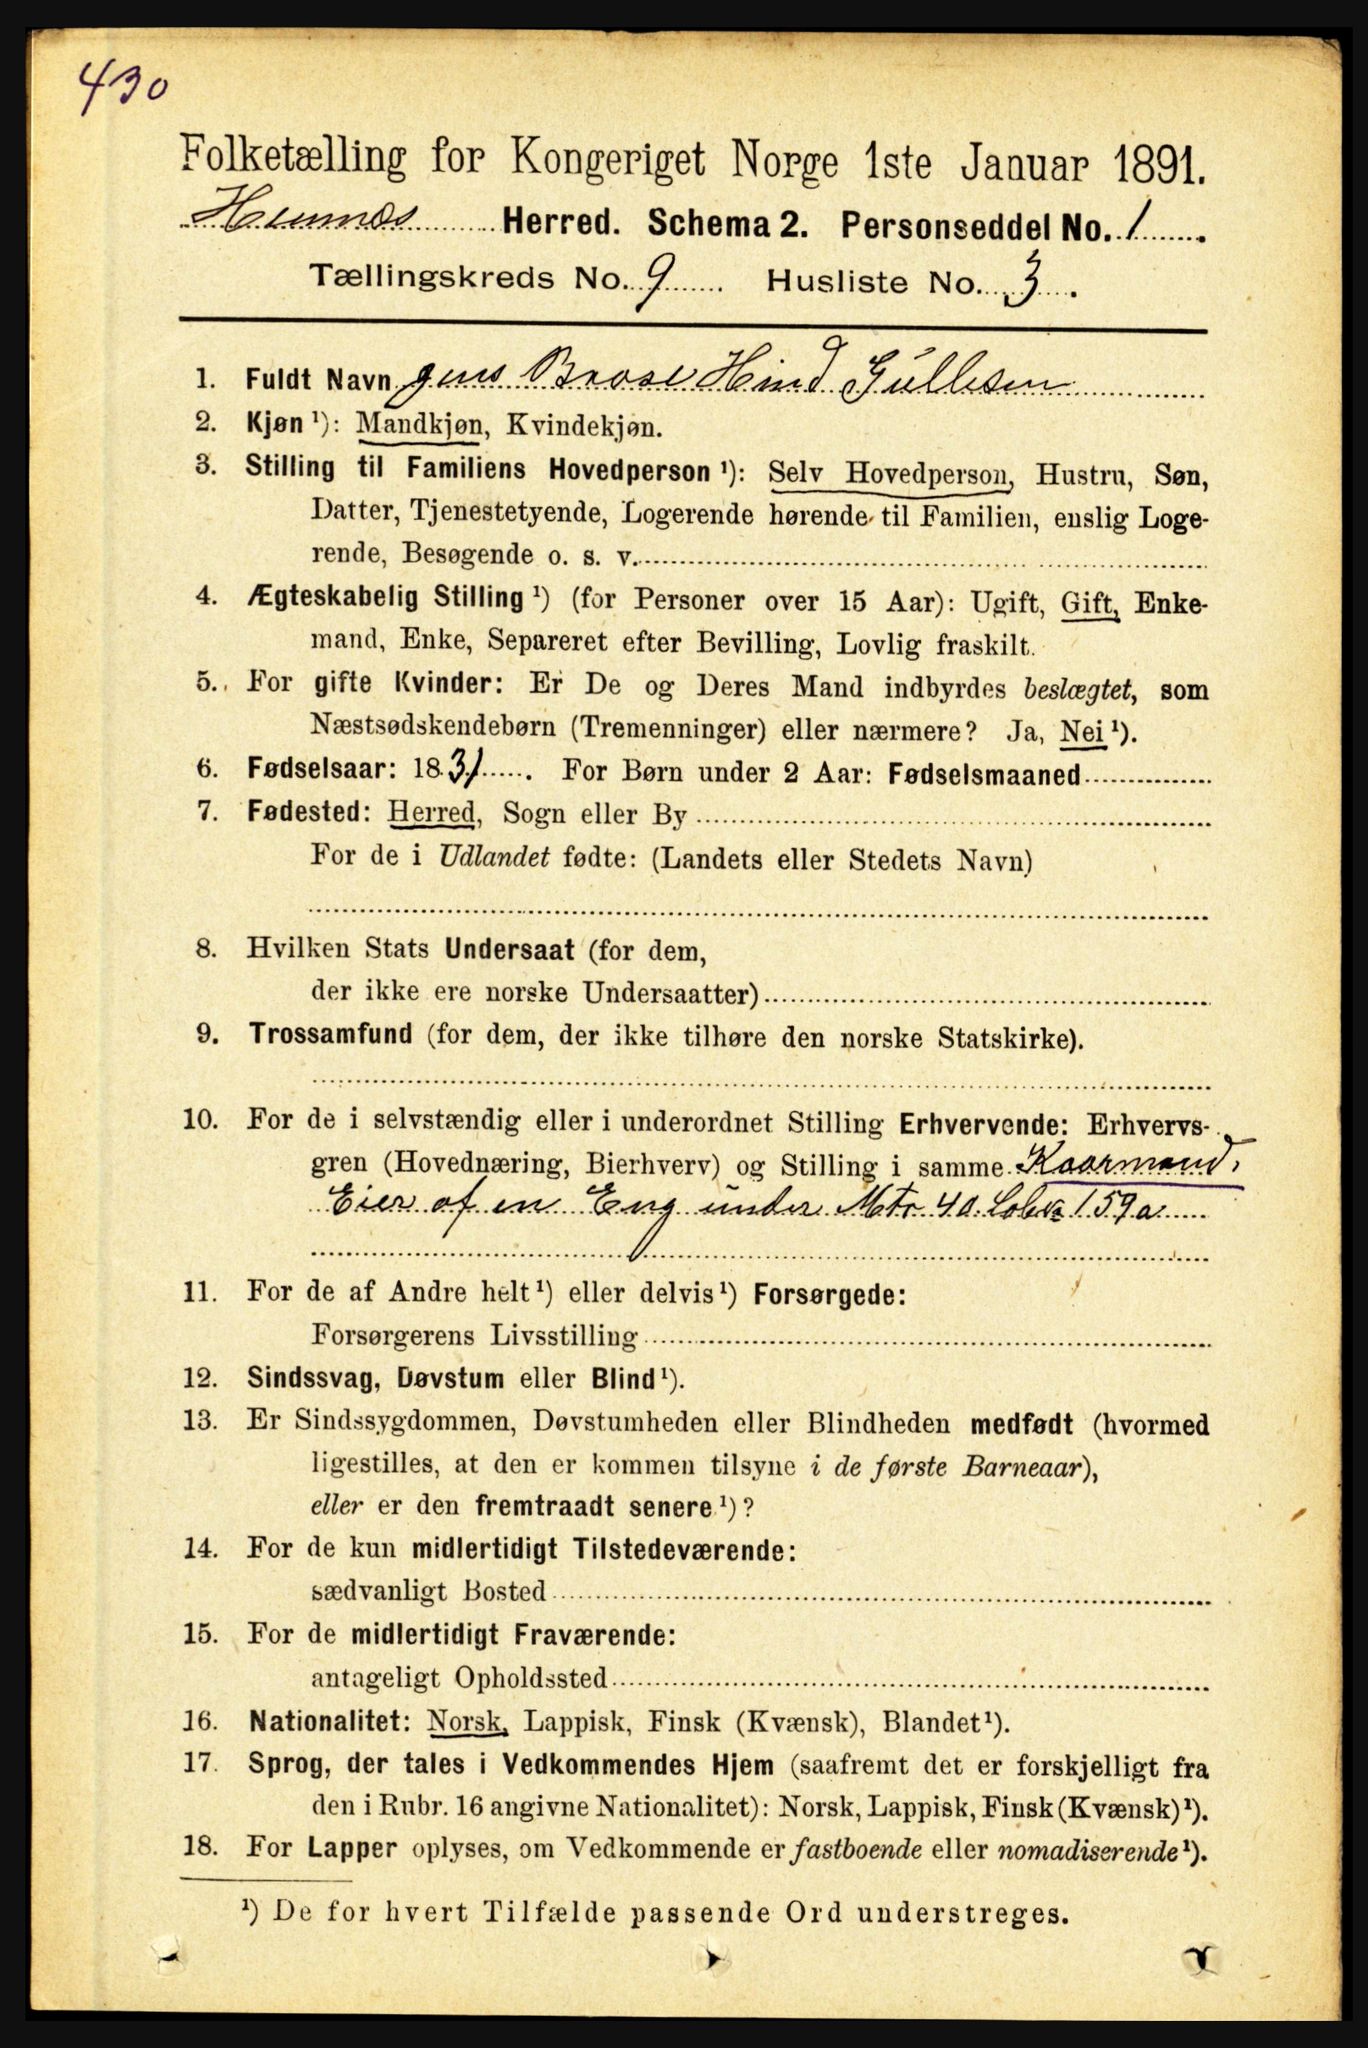 430
Folketælling for Kongeriget Norge 1ste Januar 1891.
Hemnæs Herred. Schema 2. Personseddel No. 1
Tællingskreds No. 9 Husliste No. 3.
1. Fuldt Navn Jens Brose Hind Gullesen
2. Kjøn ¹): Mandkjøn, Kvindekjøn.
3. Stilling til Familiens Hovedperson ¹): Selv Hovedperson, Hustru, Søn,
Datter, Tjenestetyende, Logerende hørende til Familien, enslig Loge-
rende, Besøgende o. s. v.
4. Ægteskabelig Stilling ¹) (for Personer over 15 Aar): Ugift, Gift, Enke-
mand, Enke, Separeret efter Bevilling, Lovlig fraskilt.
5. For gifte Kvinder: Er De og Deres Mand indbyrdes beslægtet, som
Næstsødskendebørn (Tremenninger) eller nærmere? Ja, Nei ¹).
6. Fødselsaar: 1831. For Børn under 2 Aar: Fødselsmaaned
7. Fødested: Herred, Sogn eller By
For de i Udlandet fødte: (Landets eller Stedets Navn)
8. Hvilken Stats Undersaat (for dem,
der ikke ere norske Undersaatter)
9. Trossamfund (for dem, der ikke tilhøre den norske Statskirke).
10. For de i selvstændig eller i underordnet Stilling Erhvervende: Erhvervs-
gren (Hovednæring, Bierhverv) og Stilling i samme Kaarmand,
Eier af en Eng under Mtr 40 Lobe№ 159a
11. For de af Andre helt ¹) eller delvis ¹) Forsørgede:
Forsørgerens Livsstilling
12. Sindssvag, Døvstum eller Blind ¹).
13. Er Sindssygdommen, Døvstumheden eller Blindheden medfødt (hvormed
ligestilles, at den er kommen tilsyne i de første Barneaar),
eller er den fremtraadt senere ¹)?
14. For de kun midlertidigt Tilstedeværende:
sædvanligt Bosted
15. For de midlertidigt Fraværende:
antageligt Opholdssted
16. Nationalitet: Norsk, Lappisk, Finsk (Kvænsk), Blandet ¹).
17. Sprog, der tales i Vedkommendes Hjem (saafremt det er forskjelligt fra
den i Rubr. 16 angivne Nationalitet): Norsk, Lappisk, Finsk (Kvænsk) ¹).
18. For Lapper oplyses, om Vedkommende er fastboende eller nomadiserende ¹).
¹) De for hvert Tilfælde passende Ord understreges.